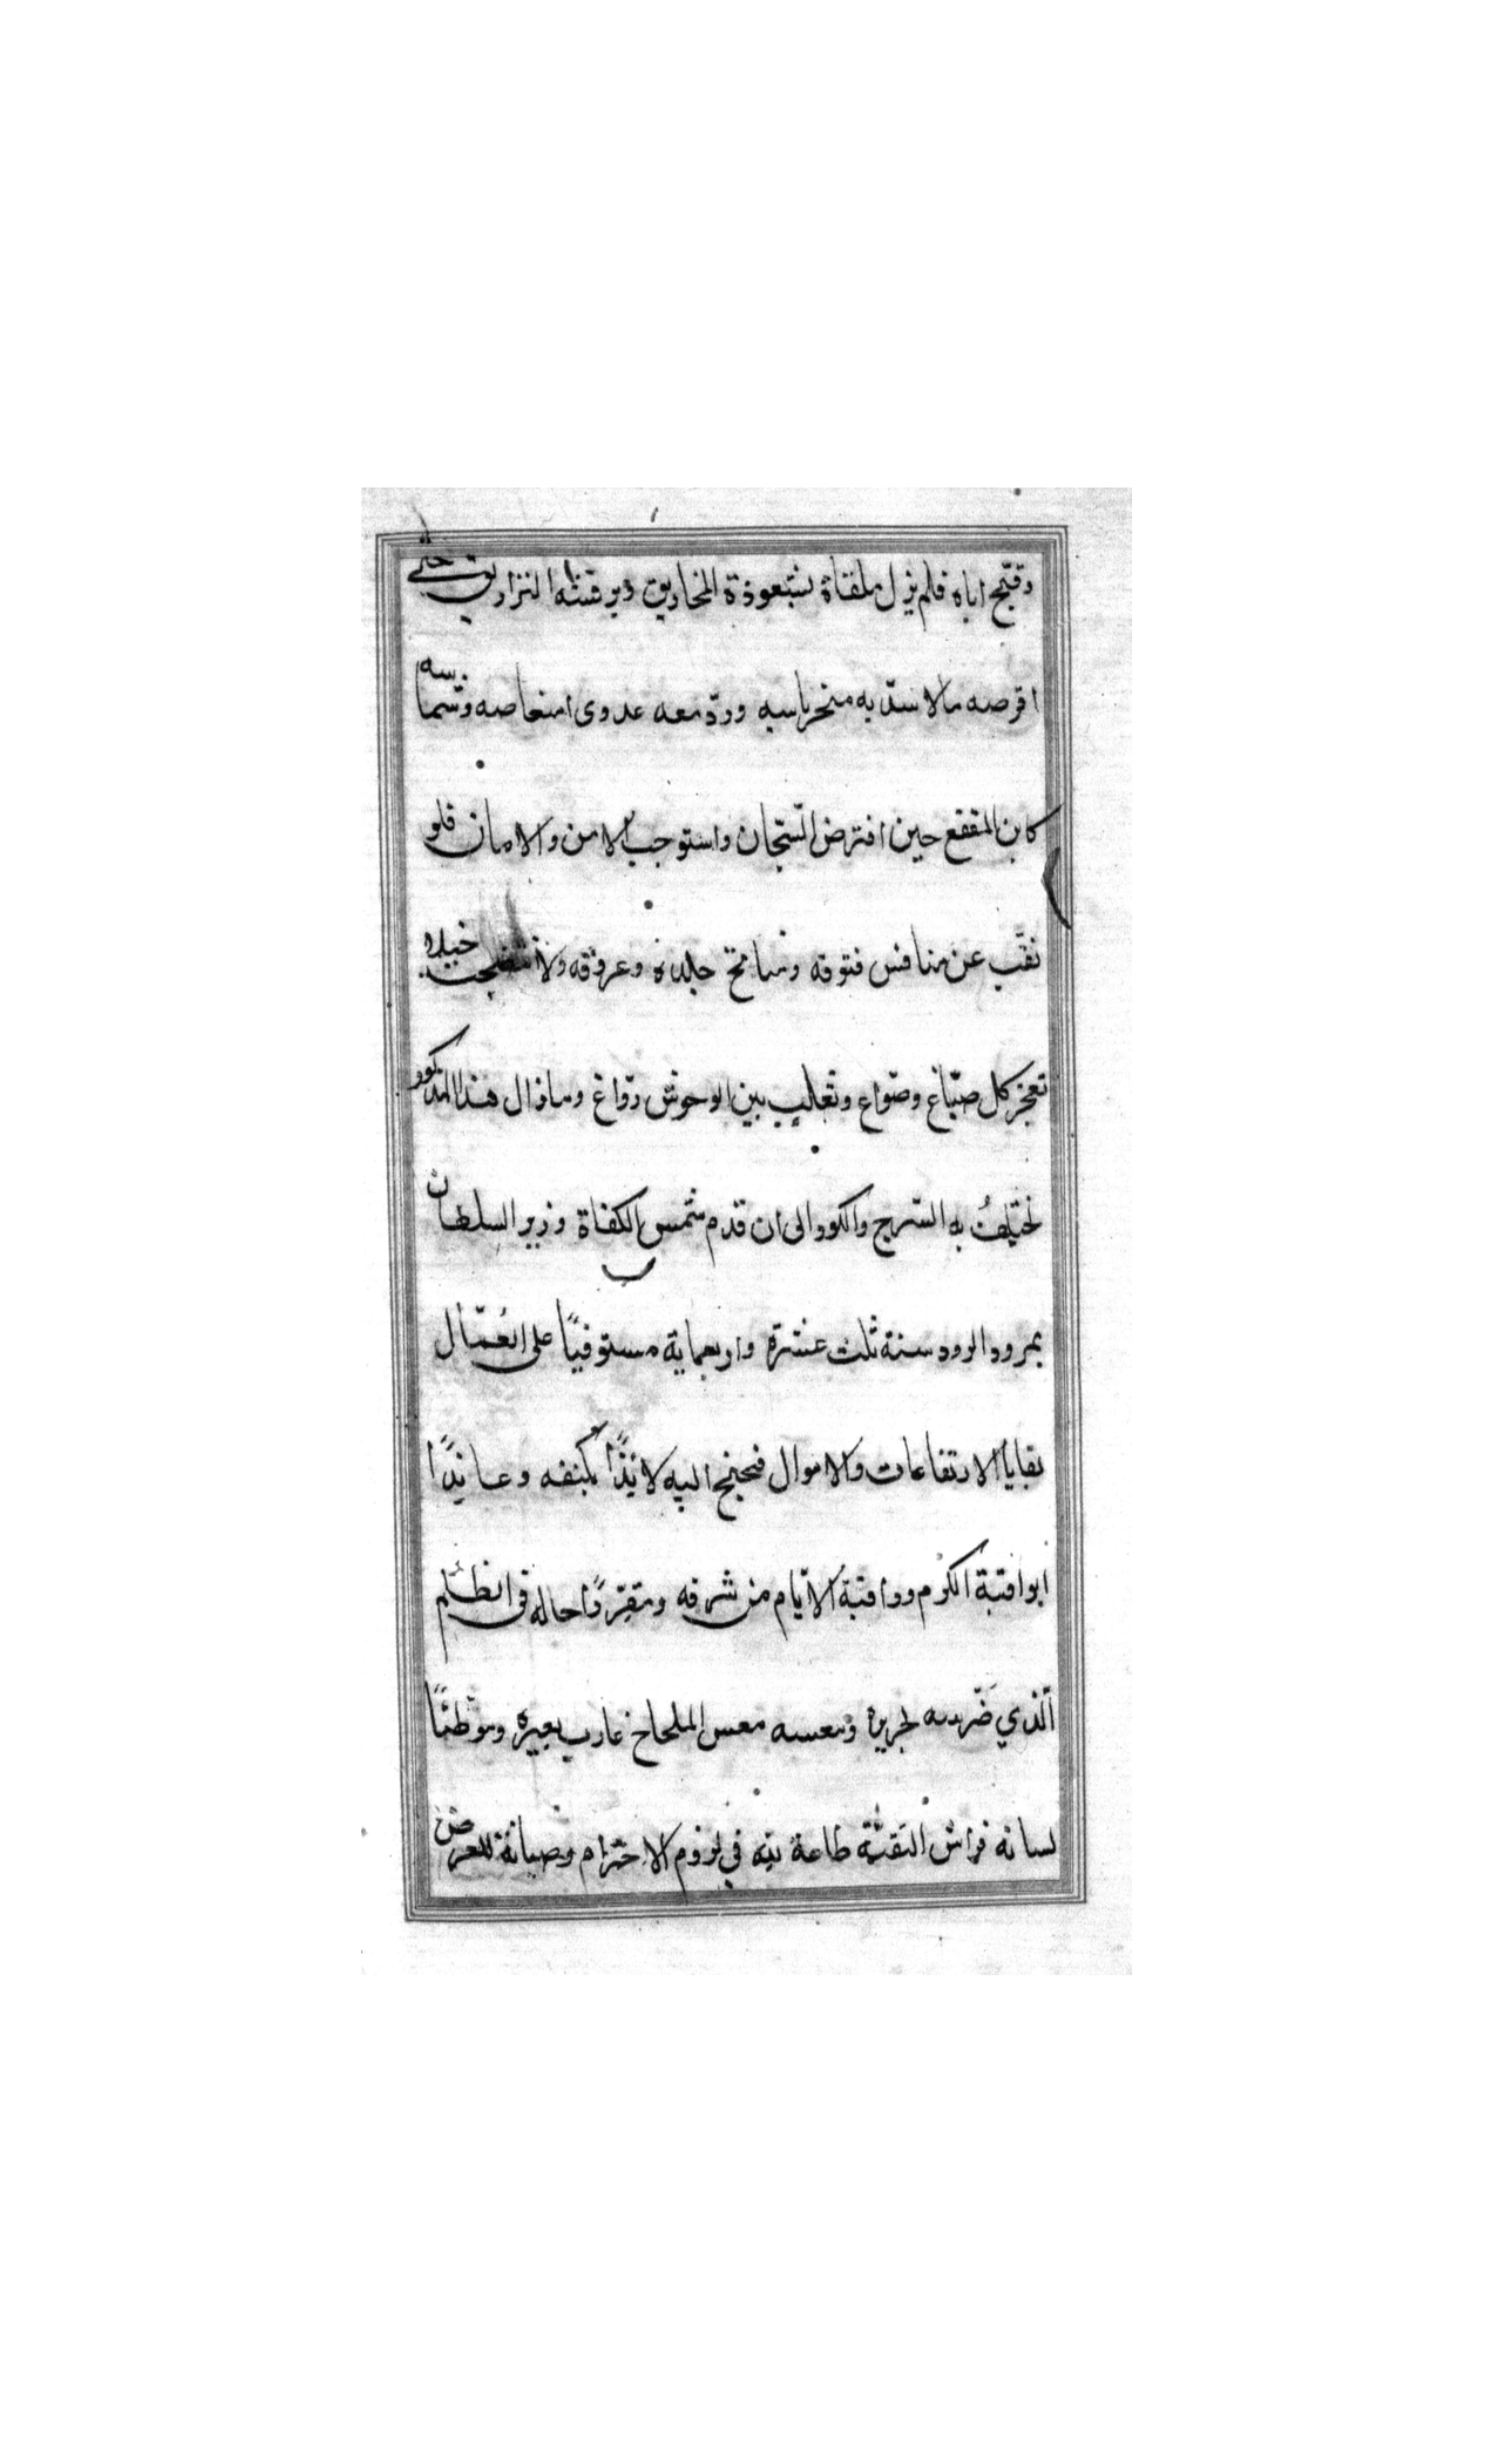 وقبّح اباه فلم يزل يلقاه بشعوذة المخاريق وبرقشة التزاريق حتى
اقرضه مالا سدّ به منخر ياسه وردّ معه عدوى امتعاصه وشماسه
كابن المقفع حين افترض السّجّان واستوجب الامن والامان فلو
نقّب عن منافس فتوقه ومنابح جلده وعروقه
تعجز كل صبّاغ وصوّاع وثعلب بين الوحوش روّاغ وما زال هذا المذكور
تختلفُ به السّرج والكور الى ان قدم شمس الكفاة وزير السلطان
بمرو الرود سنة ثلث عشرة واربعماية مستوفيًا على العُمّال
بقايا الارتفاعات والاموال فجنح اليه لائذًا بكنفه وعائذًا
بواقية الكرم وواقية الايّام من شرفه ومقرّرًا حاله فى الظلم
الّذي ضَرسه لجريره ومعسه معس الملحاح غارب بعيره وموطئًا
لسانه فراش التقيّة طاعة نيه في لزوم الاحترام وصيانة للعرض